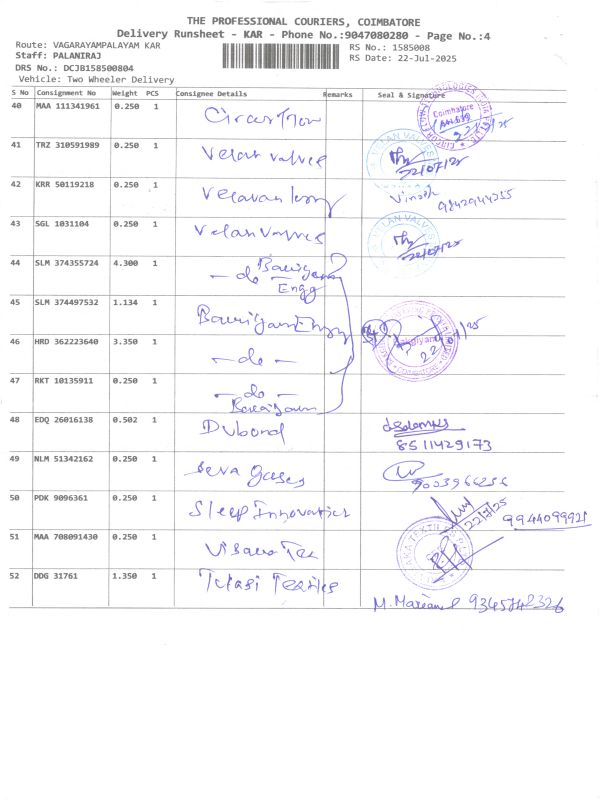 THE PROFESSIONAL COURIERS, COIMBATORE
Delivery Runsheet - KAR - Phone No.:9047080280 - Page No.:4
Route: VAGARAYAMPALAYAM KAR
RS No.: 1585008
Staff: PALANIRAJ
RS Date: 22-Jul-2025
DRS No.: DCJB158500804
Vehicle: Two Wheeler Delivery
S No Consignment No Weight PCS Consignee Details Remarks Seal & Signature
40 MAA 111341961 0.250 1
Coimbatore
41 TRZ 310591989 0.250 1 Velan valves
22/07/25
42 KRR 50119218 0.250 1 Velavan
Vinoth 9842944355
43 SGL 1031104 0.250 1 Velan Valves
22/07/25
44 SLM 374355724 4.300 1 - do -
Engg
45 SLM 374497532 1.134 1
46 HRD 362223640 3.350 1 - do -
47 RKT 10135911 0.250 1 - do -
48 EDQ 26016138 0.502 1 Dubond
8511429173
49 NLM 51342162 0.250 1 Seva gases
50 PDK 9096361 0.250 1 Sleep Innovation
22/7/25
9944099921
51 MAA 708091430 0.250 1
52 DDG 31761 1.350 1 Tulasi Textiles